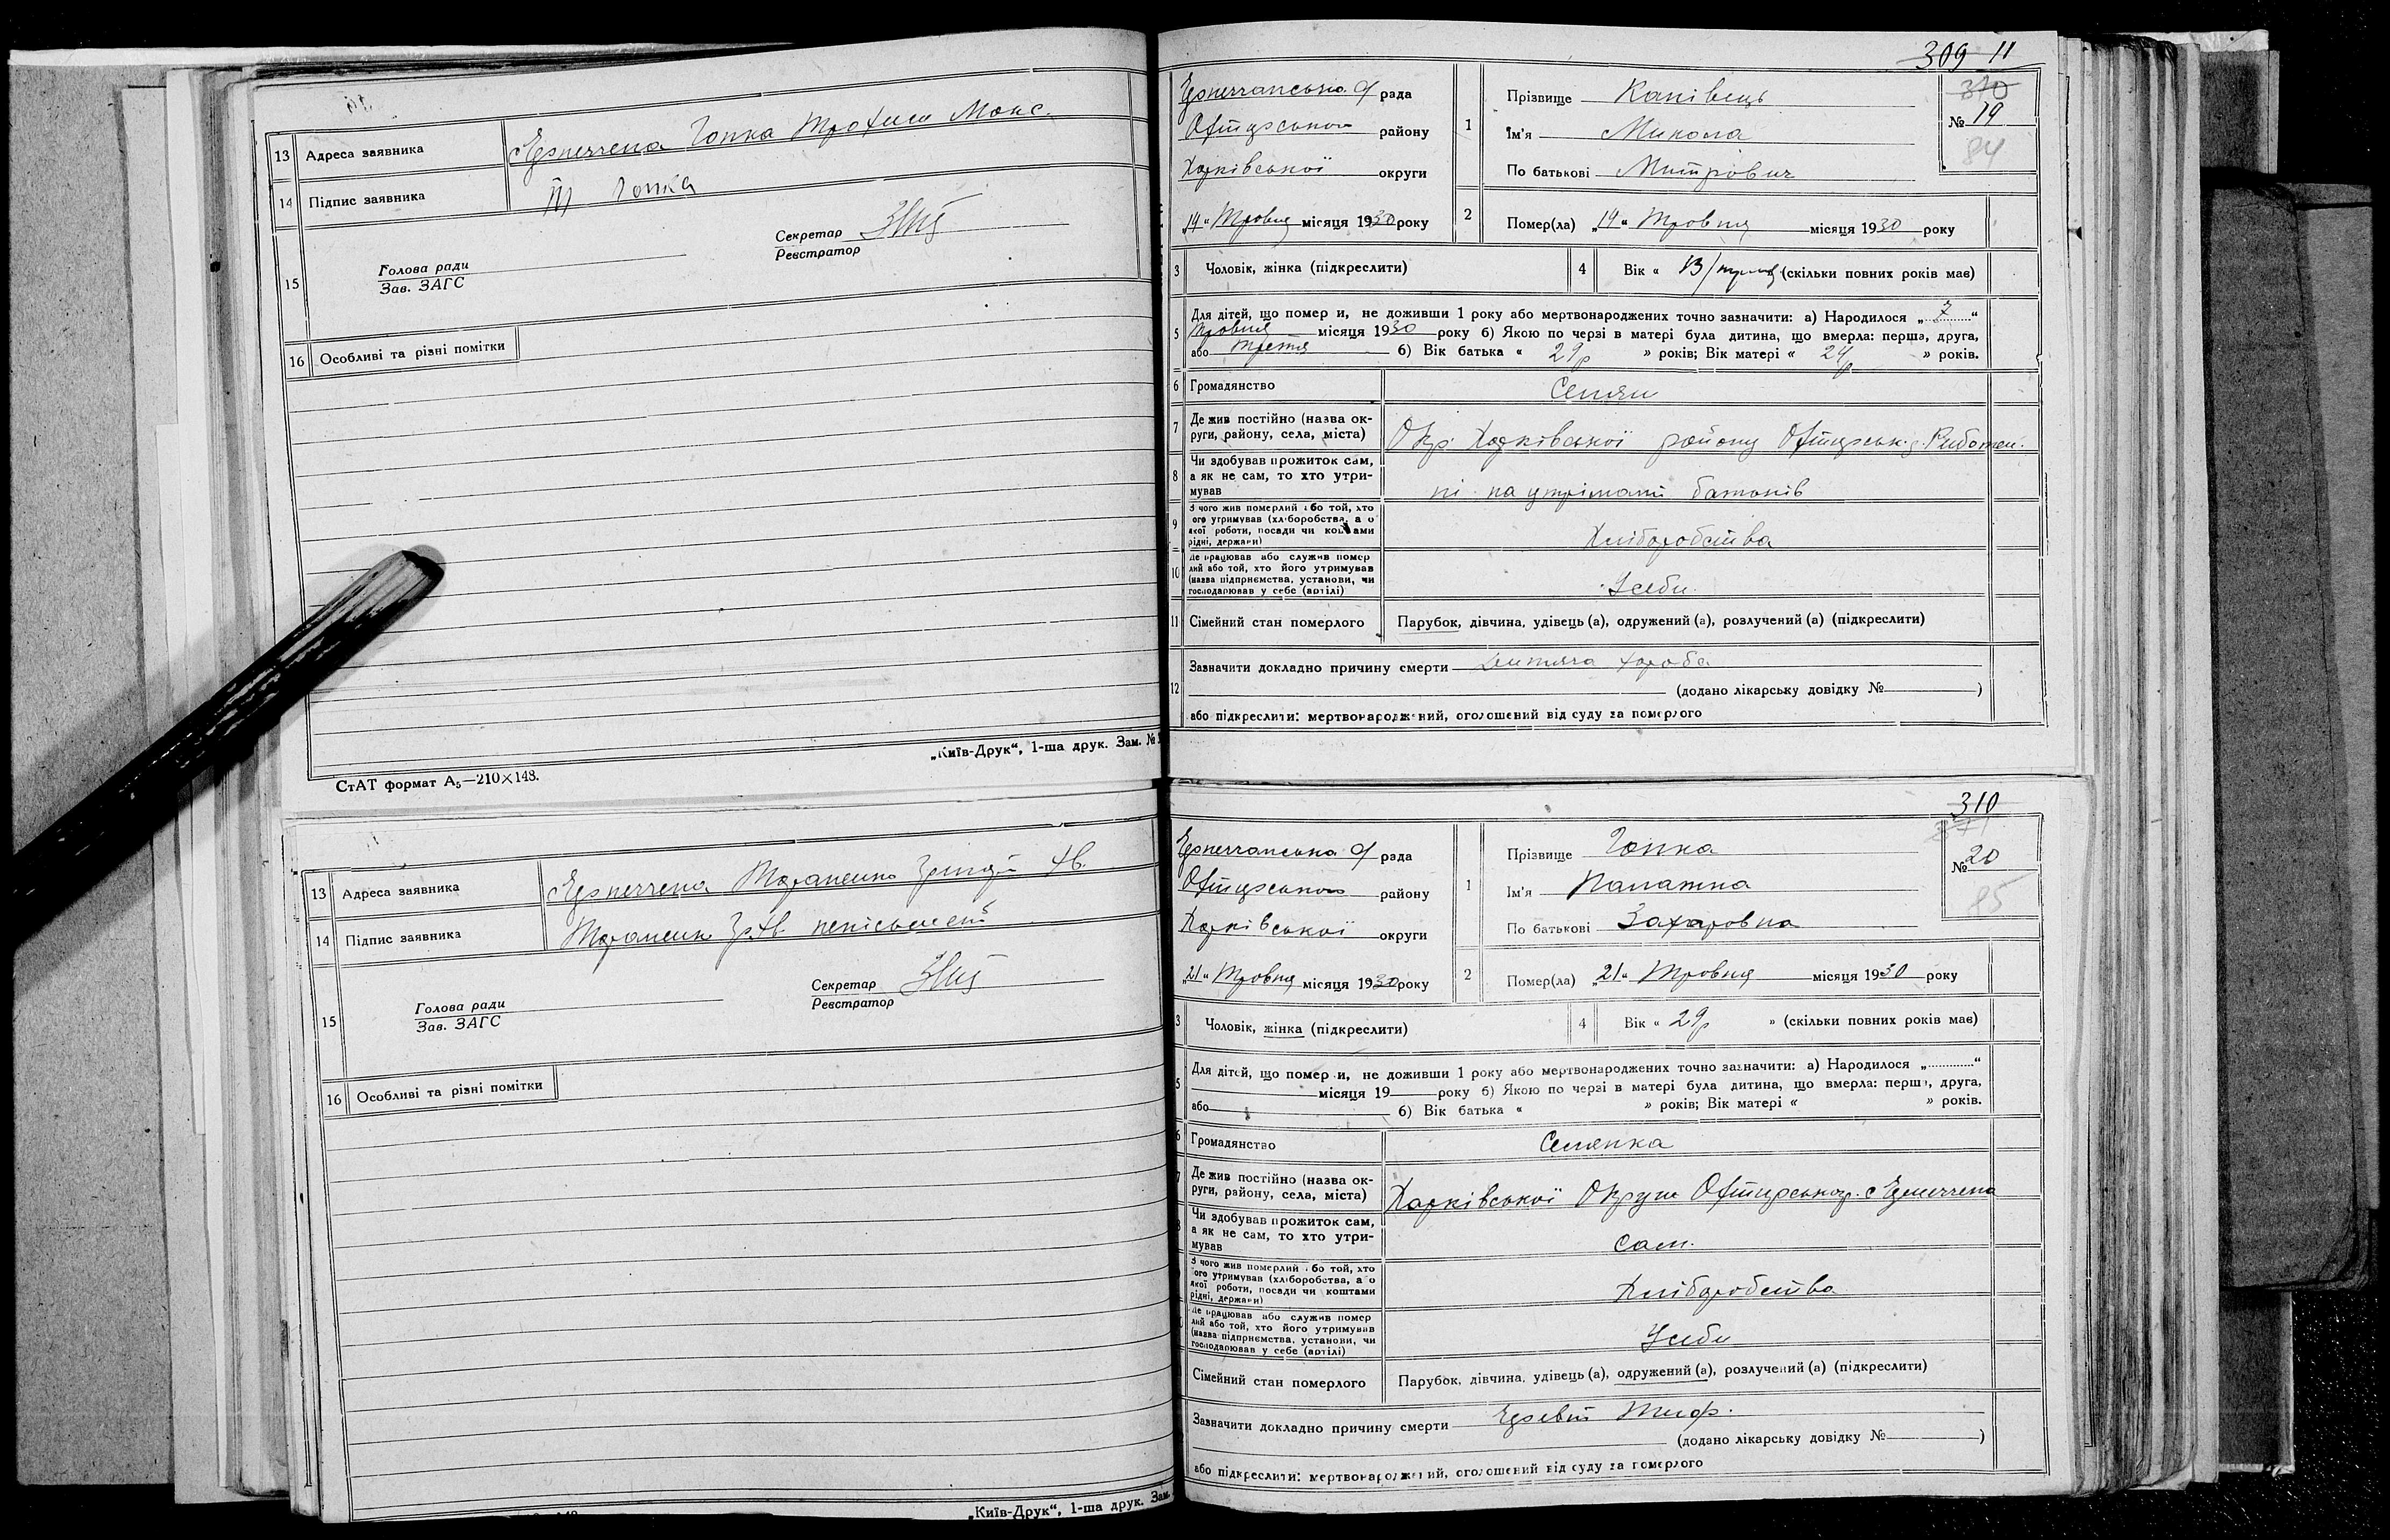 13 Адреса заявника
14 Підпис заявника
Гопка
Секретар
Реєстратор
15
Голова ради
Зав. ЗАГС
16 Особливі та різні помітки
„Київ-Друк“, 1-ша друк. Зам. №
СтАТ формат А5—210×148.
13 Адреса заявника
14 Підпис заявника
Секретар
Реєстратор
15
Голова ради
Зав. ЗАГС
16 Особливі та різні помітки
„Київ-Друк“, 1-ша друк. Зам.
309 11
рада
району
Харківської округи
„14“ Травня місяця 1930 року
1
Прізвище Канівець
Ім'я Микола
По батькові Митрович
310
№ 19
84
2 Помер(ла) „14“ Травня місяця 1930 року
3 Чоловік, жінка (підкреслити)
4 Вік « (скільки повних років має)
5 Для дітей, що помер и, не доживши 1 року або мертвонароджених точно зазначити: а) Народилося „ 7 “
Травня місяця 1930 року б) Якою по черзі в матері була дитина, що вмерла: перша, друга,
або третя б) Вік батька « 29р » років; Вік матері « 24р » років.
6 Громадянство Селян
7 Де жив постійно (назва ок-
руги, району, села, міста)
Окр. Харківської району
8 Чи здобував прожиток сам,
а як не сам, то хто утри-
мував
ні на утрімані батьків
9 З чого жив померлий або той, хто
ого утримував (хліборобства, а о
якої роботи, посади чи коштами
рідні, держави)
Хліборобства
10 Де працював або служив помер
лий або той, хто його утримував
(назва підприємства, установи, чи
господарював у себе (артілі)
Усеби
11 Сімейний стан померлого Парубок, дівчина, удівець (а), одружений (а), розлучений (а) (підкреслити)
12 Зазначити докладно причину смерти Дитяча хороба
(додано лікарську довідку № )
або підкреслити: мертвонароджений, оголошений від суду за померлого
310
рада
району
Харківської округи
„21“ Травня місяця 1930 року
1
Прізвище Гопка
Ім'я Палажка
По батькові Захаровна
№ 20
85
2 Помер(ла) „21“ Травня місяця 1930 року
3 Чоловік, жінка (підкреслити)
4 Вік « 29р » (скільки повних років має)
5 Для дітей, що помер и, не доживши 1 року або мертвонароджених точно зазначити: а) Народилося „ “
місяця 19 року б) Якою по черзі в матері була дитина, що вмерла: перша, друга,
або б) Вік батька « » років; Вік матері « » років.
6 Громадянство Селянка
7 Де жив постійно (назва ок-
руги, району, села, міста)
Харківської Округи
Чи здобував прожиток сам,
а як не сам, то хто утри-
мував
сам.
З чого жив померлий або той, хто
ого утримував (хліборобства, а о
якої роботи, посади чи коштами
рідні, держави)
Хліборобства
Де працював або служив помер
лий або той, хто його утримував
(назва підприємства, установи, чи
господарював у себе (артілі)
Усеби
Сімейний стан померлого Парубок, дівчина, удівець (а), одружений (а), розлучений (а) (підкреслити)
Зазначити докладно причину смерти Тиф.
(додано лікарську довідку № )
або підкреслити: мертвонароджений, оголошений від суду за померлого